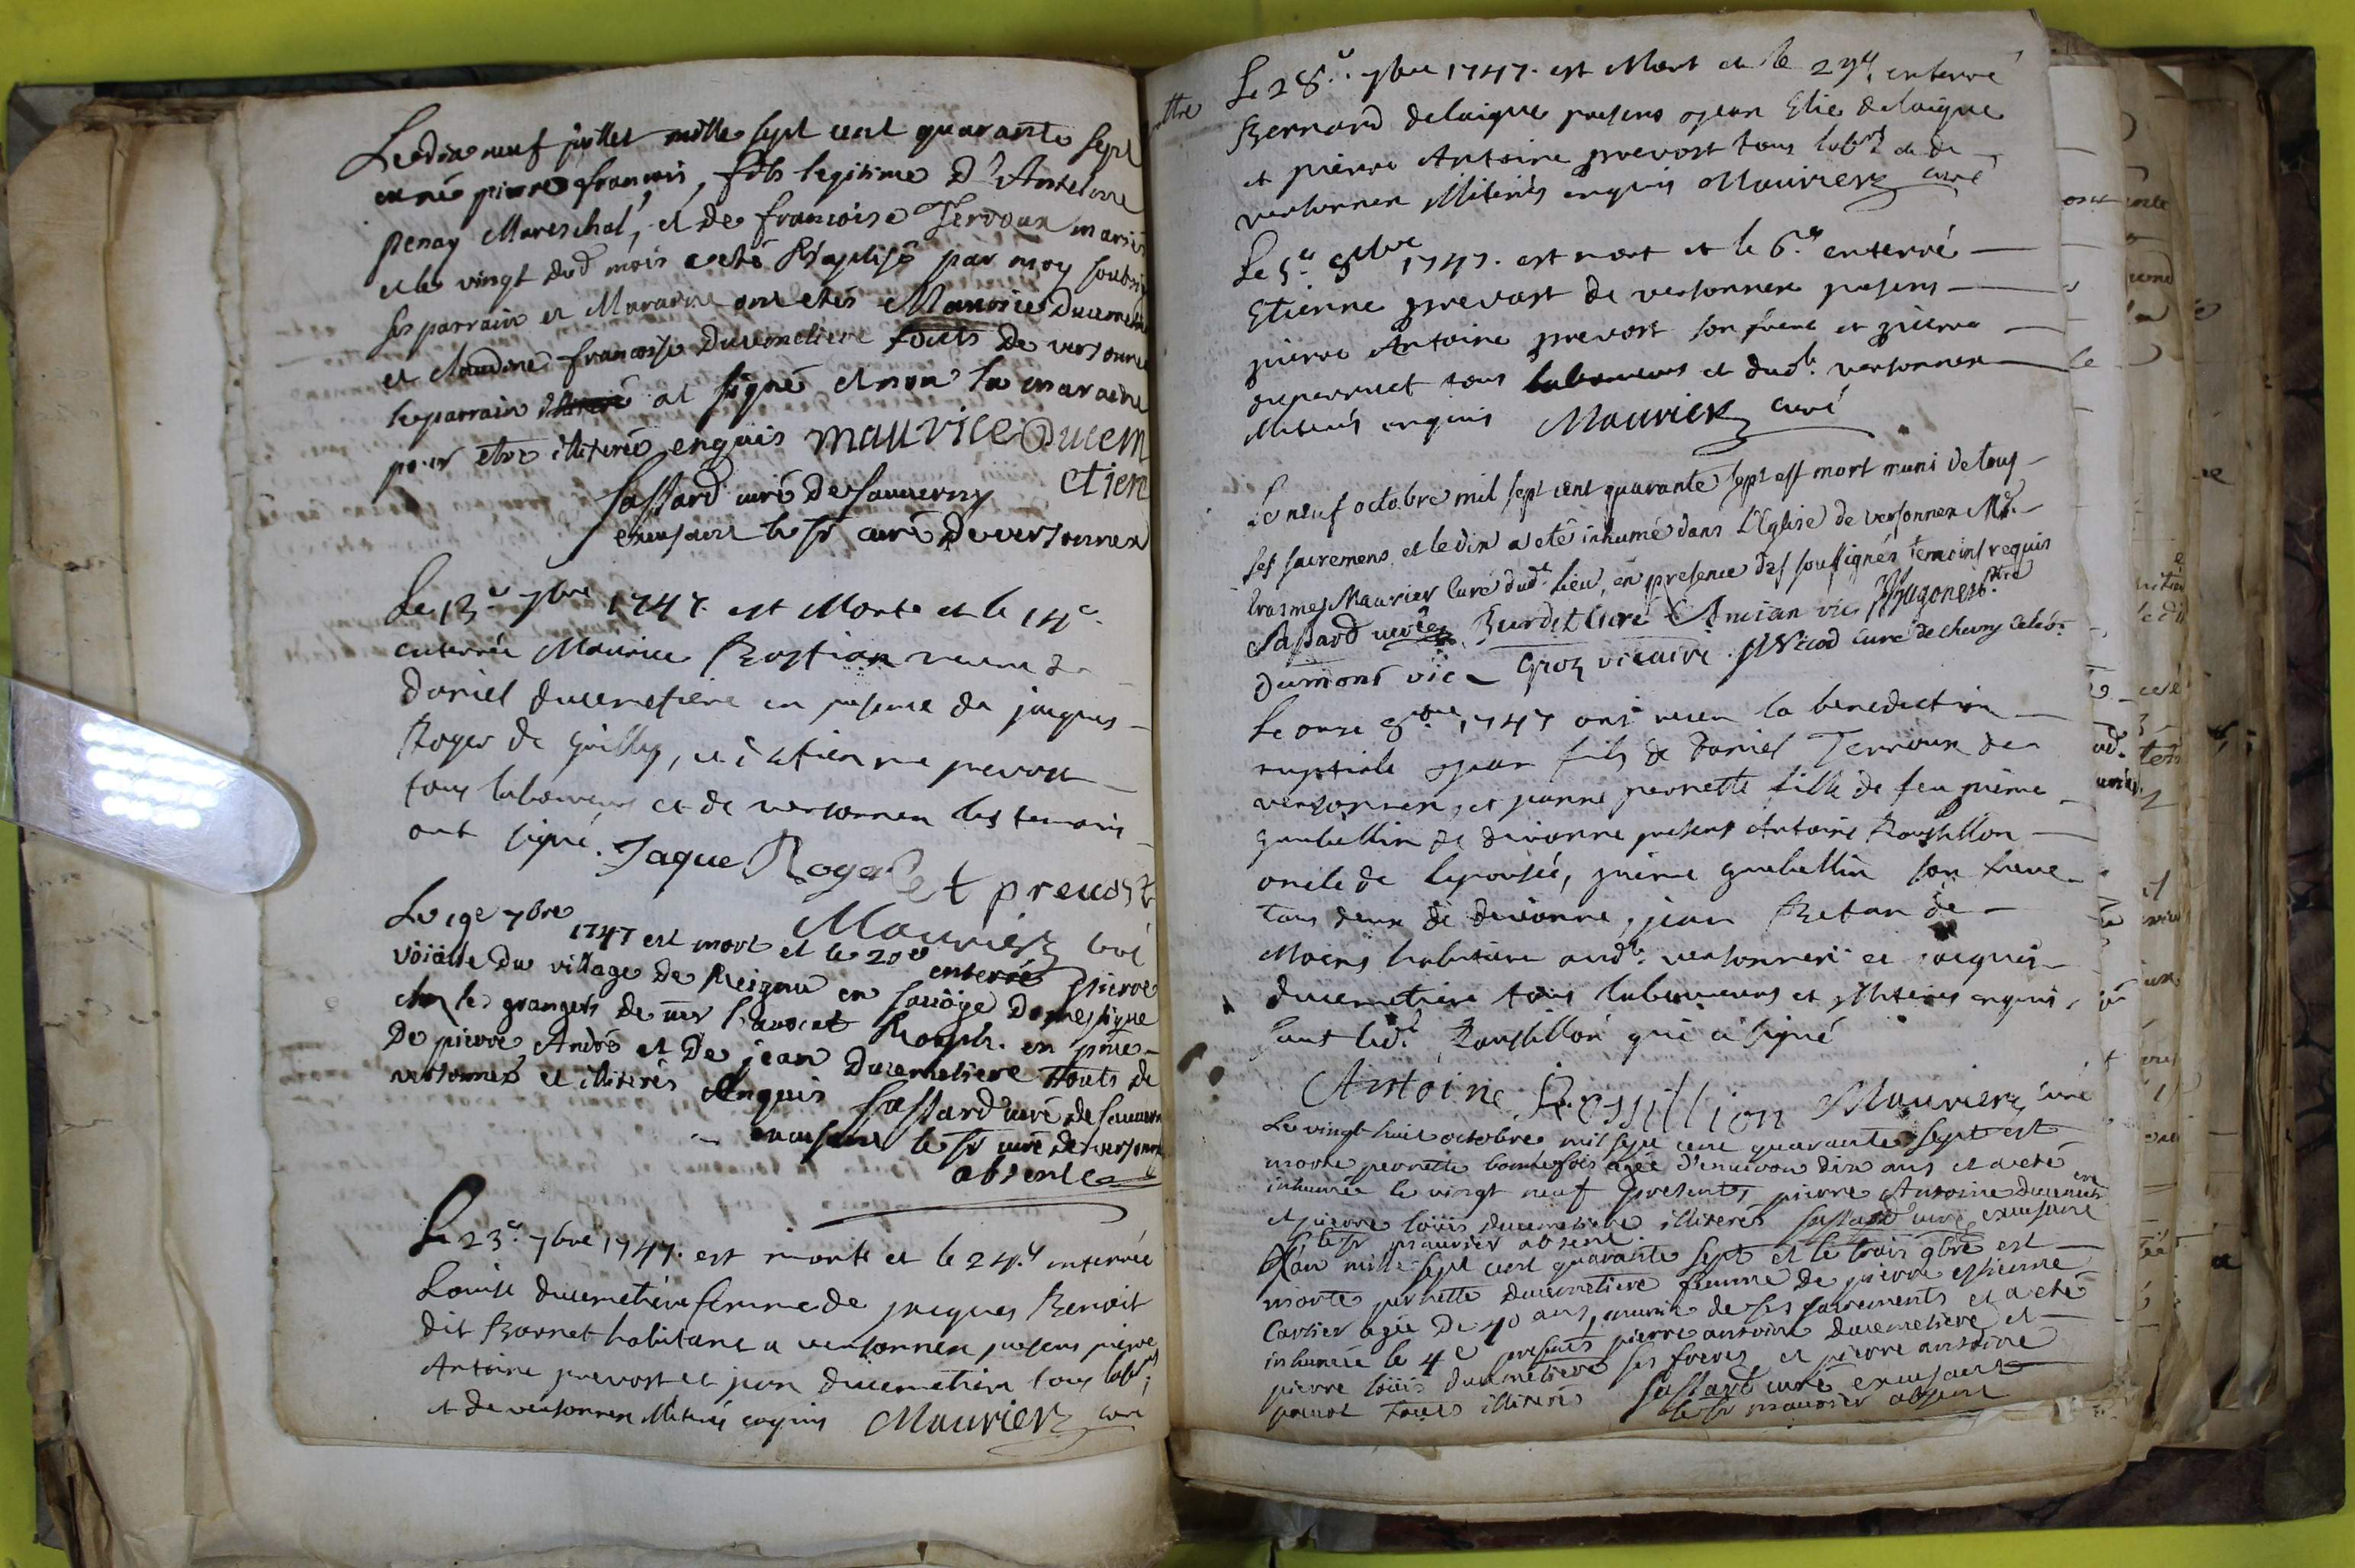 Le dix neuf juillet mille sept cent quarante sept
est né pierre françois, fils legitime d'Anthelme
penay Mareschal, et de françoise Terroux mariés
et le vingt dud mois a eté Baptisé par moy soussi
ses parrain et Maraine ont etés Maurice Ducemetie
et claudine françoise Ducemetiere touts de versonnex
le parrain at signé et non la maraine
pour etre illiteré enquis Mauvice Ducem
etien
Sassard curé de Sauverny
excusant le sr curé de versonnex
Le 13e 7bre 1747. est Morte et le 14e
enterrée Maurice Bastian veuve de
Daniel ducemetiere en presence de jacques
Roger de Grilly, et etienne prevost
tous laboureurs et de versonnex les temoins
ont signé. Jaque Roger et prevost
Maurier curé
Le 19e 7bre 1747 est mort et le 20e enterré pierre
voialle du village de Reignie en savoye domestique
chez les grangers de mr l'avocat en prse
De pierre André et de jean Ducemetiere touts de
versonnex et illiterés enquis Sassard curé de Sauverny
excusant le sr curé de versonnex
absent
Le 23e 7bre 1747. est morte et le 24e enterrée
Louise ducemetiere femme de jacques Benoit
dit Bornet habitant a versonnex presens pierre
Antoine prevost et jean ducemetiere tous labrs
et de versonnex illiterés enquis Maurier curé
Le 28e 7bre 1747. est Mort et le 29e enterré
Bernard delaigue presens jean Elie delaigue
et pierre Antoine prevost tous labrs et de
versonnex illiterés enquis Maurier curé
Le 5e 8bre 1747. est mort et le 6e enterré
Etienne prevost de versonnex presens
pierre Antoine prevost son frere et pierre
tous laboureurs et dud. versonnex
illiterés enquis Maurier curé
Le neuf octobre mil sept cent quarante sept est mort muni de tous
ses sacremens et le dix a eté inhumé dans L'Eglise de versonnex Mr.
Erasme Maurier Curé dud. lieu, en presence des soussignés temoins requis
Sassard curé Burdet Curé Ancian vic Hugonet ptre
Dumont vic Groz vicaire Nicod curé de chevry celeb.
Le onze 8bre 1747 ont receu la benediction
nuptiale jean fils de Daniel Terroux de
versonnex, et jeanne pernette fille de feu pierre
gaubellin de divonne presens Antoine Roussillon
oncle de l'epousée, pierre gaubellin son frere
tous deux de divonne, jean Betan de
Moens habitant aud. versonnex et jacques
ducemetiere tous laboureurs et illiterés enquis,
sauf led. Roussillon qui a signé
Antoine Rossillion Maurier curé
Le vingt huit octobre mil sept cent quarante sept est
morte pernette agée d'environ dix ans et a eté
inhumée le vingt neuf presents, pierre Antoine ducemetiere
et pierre loüis ducemetiere illiterés Sassard curé excusant
le sr maurier absent.
L'an mille sept cent quarante sept et le trois 9bre est
morte pernette ducemetiere femme de pierre estienne
Cartier agée de 40 ans, munie de ses sacrements et a eté
inhumée le 4e presents pierre antoine ducemetiere et
pierre loüis ducemetiere ses freres et pierre antoine
prevot touts illiterés Sassard curé excusant
le sr maurier absent